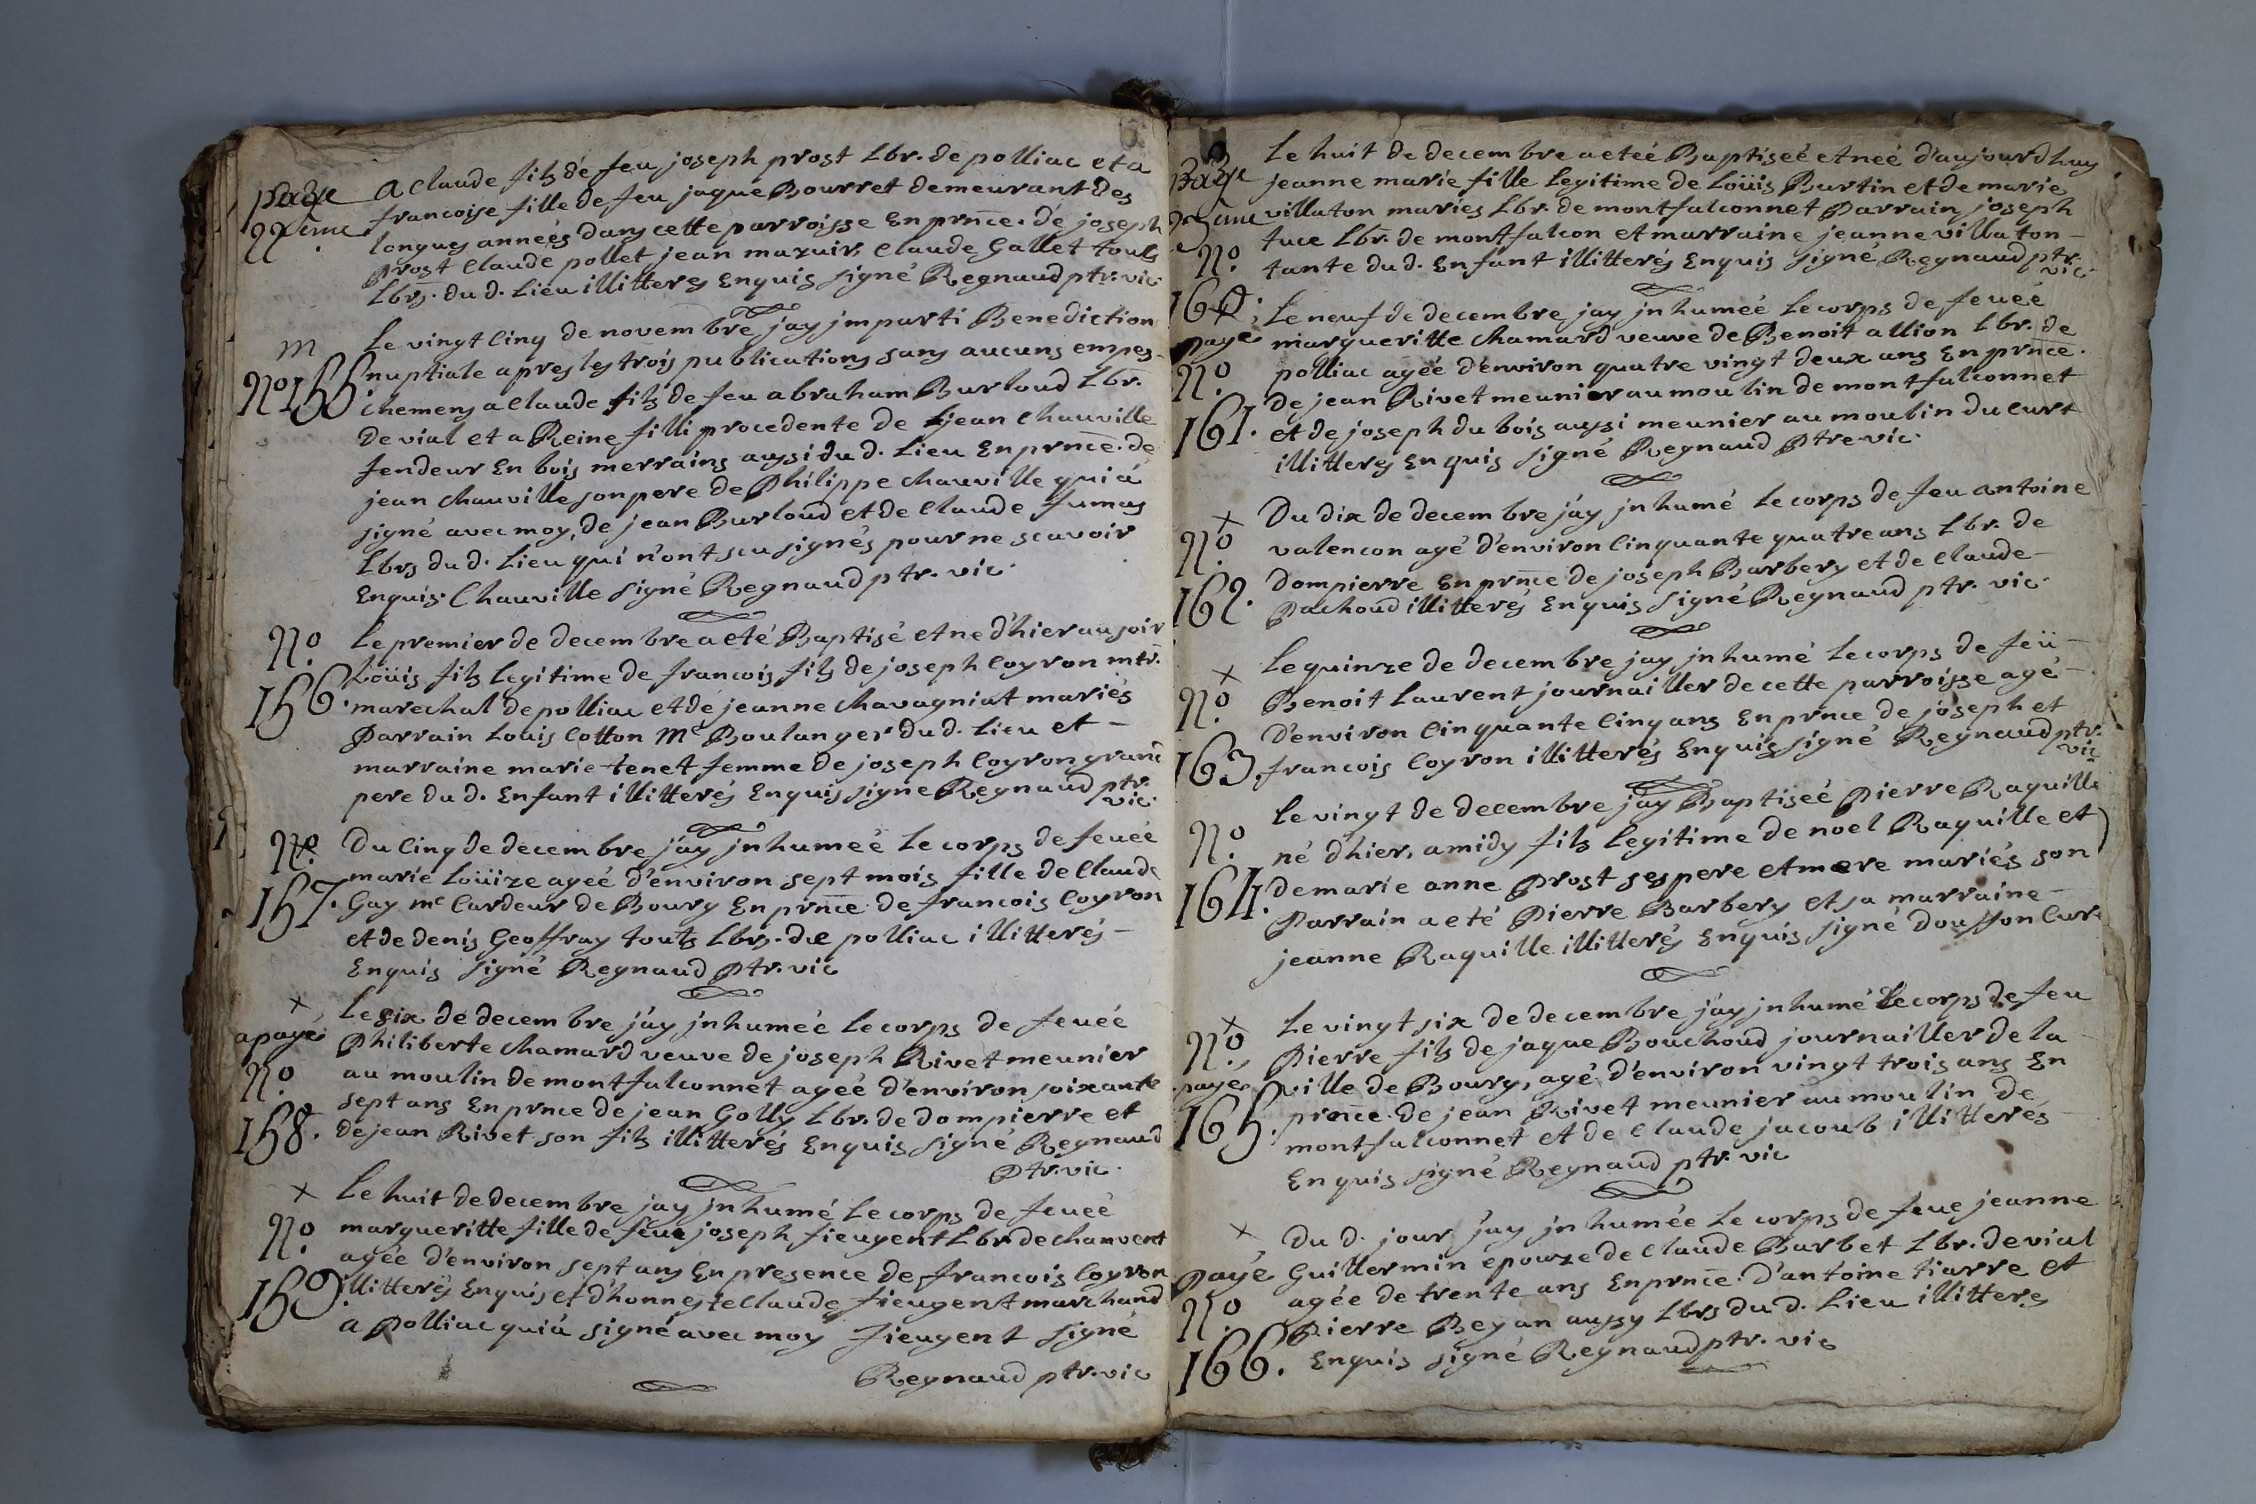 page
22eme
A Claude fils de feu joseph prost Lbr. de polliac et a
francoise fille de feu jaque Bourret demeurant des
longues années dans cette parroisse En prnce. de joseph
prost Claude pollet jean mazuir, Claude Gallet touts
Lbrs. du d. Lieu illitteres enquis signé Regnaud ptr. vic.
m
No 155
Le vingt cinq de novembre j'ay jmparti Benediction
nuptiale apres les trois publications sans aucuns empes-
chemens a Claude fils de feu abraham Burloud Lbr.
de vial et a Reine filli procedente de jean Chauville
fendeur En bois merrains aussi du d. Lieu En prnce. de
jean Chauville son pere de Philippe Chauville qui a
signé avec moy, de jean Burloud et de Claude fumas
Lbrs du d. Lieu qui n'ont scu signés pour ne scavoir
Enquis. Chauville signé Regnaud ptr. vic.
No.
156.
Le premier de decembre a eté Baptisé et ne d'hier au soir
Loüis fils legitime de francois fils de joseph Coyron mtr.
marechal de polliac et de jeanne Chavagniat mariés
Parrain Louis Cotton Me Boulanger du d. Lieu et
marraine marie tenet femme de joseph Coyron grand
pere du d. Enfant illitterés Enquis signe Regnaud ptr.
vic.
No.
157.
Du cinq de decembre j'ay jnhumeé Le corps de feuée
marie Loüize ageé d'environ sept mois fille de Claude
Gay me Cardeur de Bourg En prnce de francois Coyron
et de denis Geoffray touts Lbrs. de polliac illitterés
Enquis signé Regnaud Ptr. vic
x
a payé
No.
158.
Le six de decembre j'ay jnhumeé Le corps de feuée
Philiberte Chamard veuve de joseph Rivet meunier
au moulin de montfalconnet ageé d'environ soixante
sept ans En prnce de jean Golly Lbr. de dompierre et
de jean Rivet son fils illitterés Enquis signé Regnaud
Ptr. vic.
x
No.
159.
Le huit de decembre jay jnhumé Le corps de feueé
margueritte fille de feue joseph fieugent Lbr de chanvent
agée d'environ sept ans En presence de francois Coyron
illitterés Enquis et d'honneste Claude fieugent marchand
a Polliac qui a signé avec moy fieugent signé
Regnaud ptr. vic
page
23eme
No.
160.
Le huit de decembre a eteé Baptiseé et neé d'aujourdhuy
jeanne marie fille Legitime de Loüis Burtin et de marie
villaton mariés Lbr. de montfalconnet Parrain joseph
tuce Lbr. de montfalcon et marraine jeanne villaton
tante du d. Enfant illitterés Enquis signé Regnaud ptr.
vic.
paye
No.
161.
Le neuf de decembre jay jnhumeé Le corps de feuéé
margueritte Chamard veuve de Benoit allion Lbr. de
polliac ageé d'environ quatre vingt deux ans En prnce.
De jean Rivet meunier au moulin de montfalconnet
et de joseph du bois aussi meunier au moulin du Curt
illitterés Enquis signé Regnaud Ptre vic.
x
No.
162.
Du dix de decembre j'ay jnhumé Le corps de feu antoine
valencon agé d'environ Cinquante quatre ans Lbr. de
Dompierre En prnce de joseph Barbery et de Claude
Pachoud illitterés Enquis signé Regnaud ptr. vic.
x
No.
163.
Le quinze de decembre jay jnhumé Le corps de feü
Benoit Laurent journailler de cette parroisse agé
D'environ Cinquante Cinq ans En prnce de joseph et
francois Coyron illitterés Enquis signé Regnaud ptr.
vic
No.
164.
Le vingt de decembre jay Baptiseé Pierre Raquille
né d'hier, a midy fils legitime de noel Raquille et
de marie anne Prost ses pere et mere mariés son
Parrain a eté Pierre Barbery et sa marraine
jeanne Raquille illitterés Enquis signé Dousson Curé
x
No.
paye
165.
Le vingt six de decembre j'ay jnhumé Le corps de feu
Pierre fils de jaque Bouchoud journailler de la
ville de Bourg, agé d'environ vingt trois ans En
prnce. de jean Rivet meunier au moulin de
montfalconnet et de Claude jacoub illitterés
Enquis signé Regnaud ptr. vic
x
payé
No.
166.
Du d. jour j'ay jnhumée Le corps de feue jeanne
Guillermin epouze de Claude Barbet Lbr. de vial
agée de trente ans En prnce. d'antoine tiarre et
Pierre Reyan aussy Lbrs du d. Lieu illitteres
Enquis signé Regnaud ptr. vic